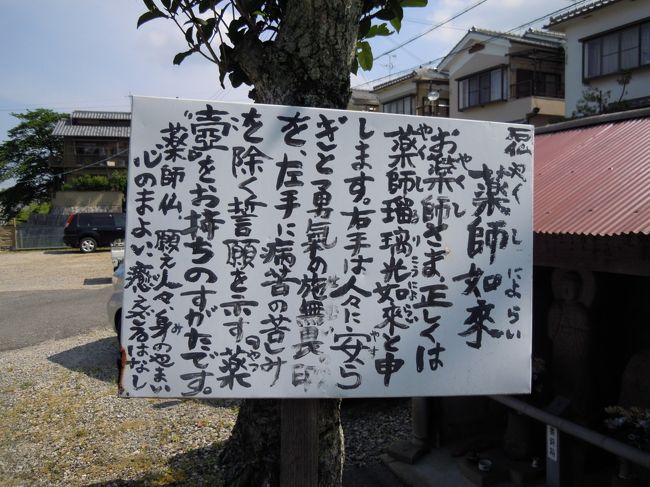 薬師如来
やくし によらい
お薬師さま正しくは
やくし
薬師瑠璃光如来と申
やくしるりこうによらい
します。右手は人々に安ら
やす
ぎと勇氣の施無畏印
を左手に病苦の苦しみ
を除く誓願を示す。薬
やつ
壺をお持ちのすがたです。
薬師仏 願え人々 身のやまい
み
心のまよい 癒えざるはなし